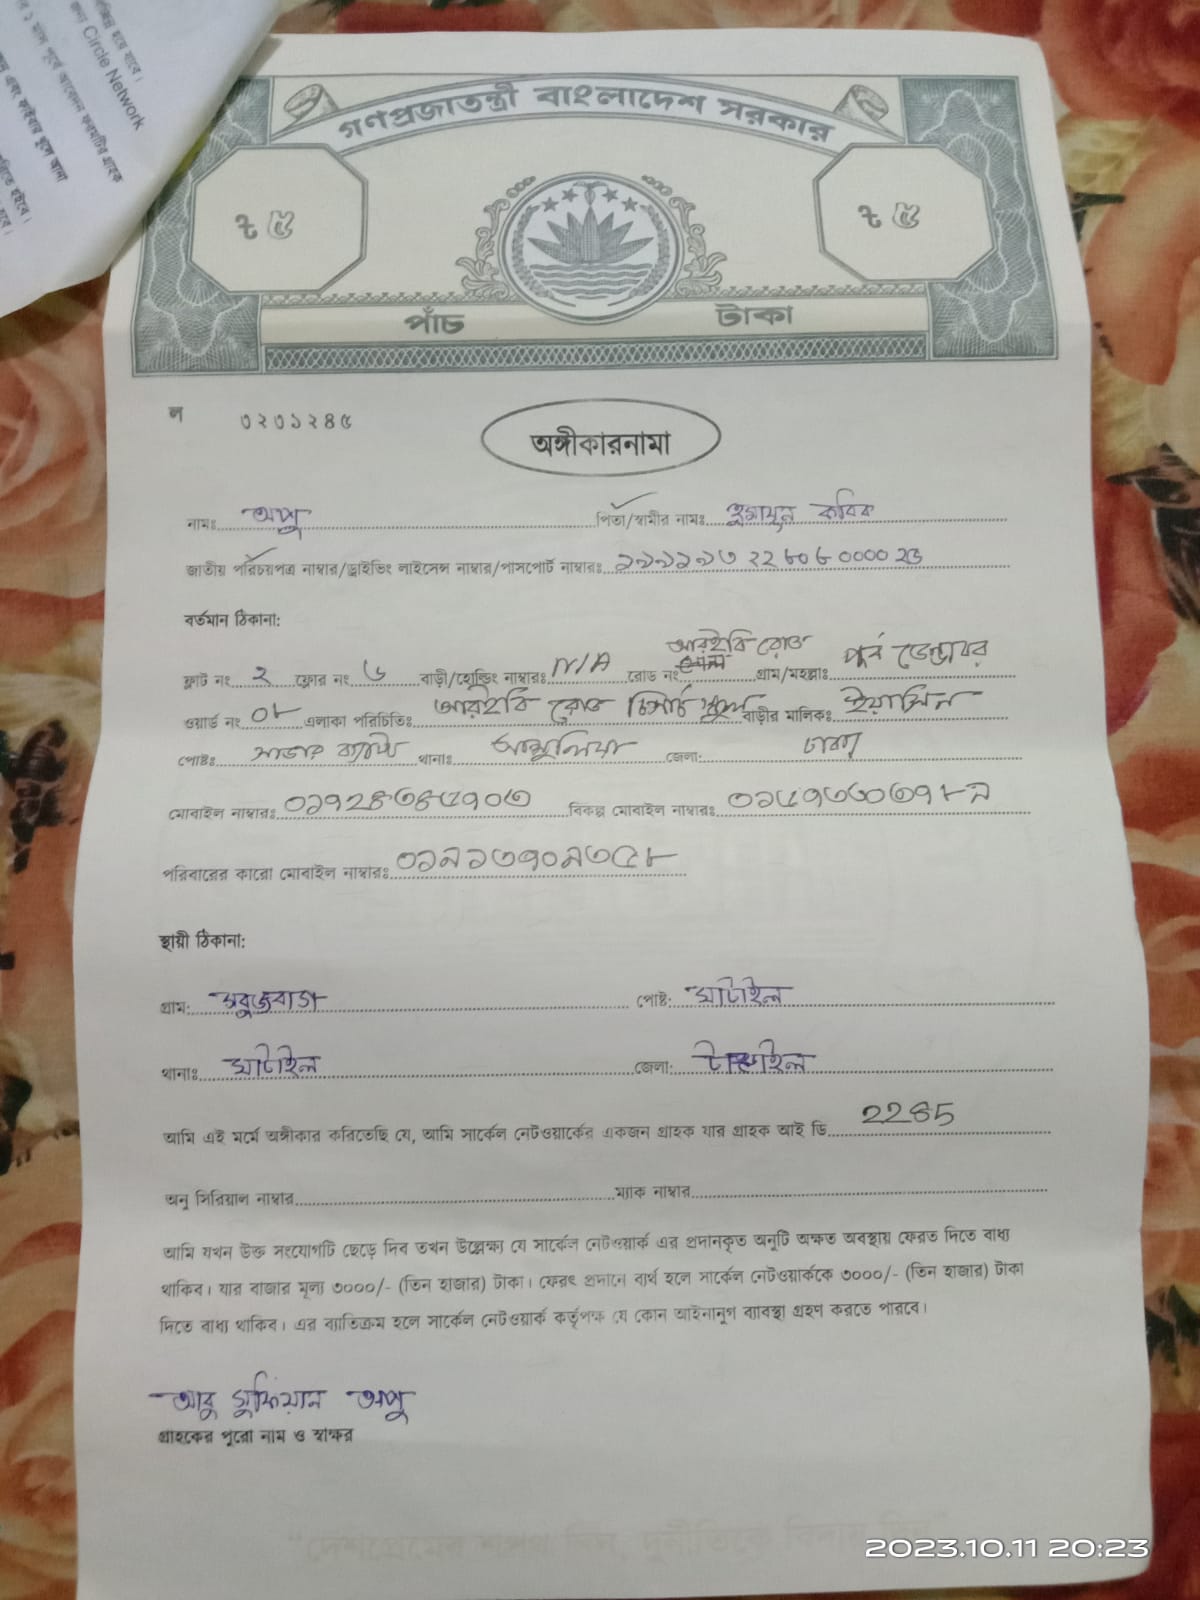 জন্য Circle Network
গণপ্রজাতন্ত্রী বাংলাদেশ সরকার
৳ ৫ ৳ ৫
পাঁচ টাকা
ল ৩২৩১২৪৫
অঙ্গীকারনামা
নামঃ অপু পিতা/স্বামীর নামঃ হুমায়ুন কবির
জাতীয় পরিচয়পত্র নাম্বার/ড্রাইভিং লাইসেন্স নাম্বার/পাসপোর্ট নাম্বারঃ
বর্তমান ঠিকানা:
ফ্লাট নং ২ ফ্লোর নং ৬ বাড়ী/হোল্ডিং নাম্বারঃ N/A রোড নং আরইবি রোড গ্রাম/মহল্লাঃ পূর্ব ডেন্ডাবর
ওয়ার্ড নং ০৮ এলাকা পরিচিতিঃ আরইবি রোড বাড়ীর মালিকঃ ইয়াসিন
পোষ্টঃ সাভার ক্যান্ট থানাঃ আশুলিয়া জেলা: ঢাকা
মোবাইল নাম্বারঃ বিকল্প মোবাইল নাম্বারঃ
পরিবারের কারো মোবাইল নাম্বারঃ
স্থায়ী ঠিকানা:
গ্রাম: সবুজবাগ পোষ্ট: ঘাটাইল
থানাঃ ঘাটাইল জেলা: টাঙ্গাইল
আমি এই মর্মে অঙ্গীকার করিতেছি যে, আমি সার্কেল নেটওয়ার্কের একজন গ্রাহক যার গ্রাহক আই ডি 2285
অনু সিরিয়াল নাম্বার ম্যাক নাম্বার
আমি যখন উক্ত সংযোগটি ছেড়ে দিব তখন উল্লেক্ষ্য যে সার্কেল নেটওয়ার্ক এর প্রদানকৃত অনুটি অক্ষত অবস্থায় ফেরত দিতে বাধ্য
থাকিব। যার বাজার মূল্য ৩০০০/- (তিন হাজার) টাকা। ফেরৎ প্রদানে ব্যর্থ হলে সার্কেল নেটওয়ার্ককে ৩০০০/- (তিন হাজার) টাকা
দিতে বাধ্য থাকিব। এর ব্যাতিক্রম হলে সার্কেল নেটওয়ার্ক কর্তৃপক্ষ যে কোন আইনানুগ ব্যাবস্থা গ্রহণ করতে পারবে।
আবু সুফিয়ান অপু
গ্রাহকের পুরো নাম ও স্বাক্ষর
2023.10.11 20:23